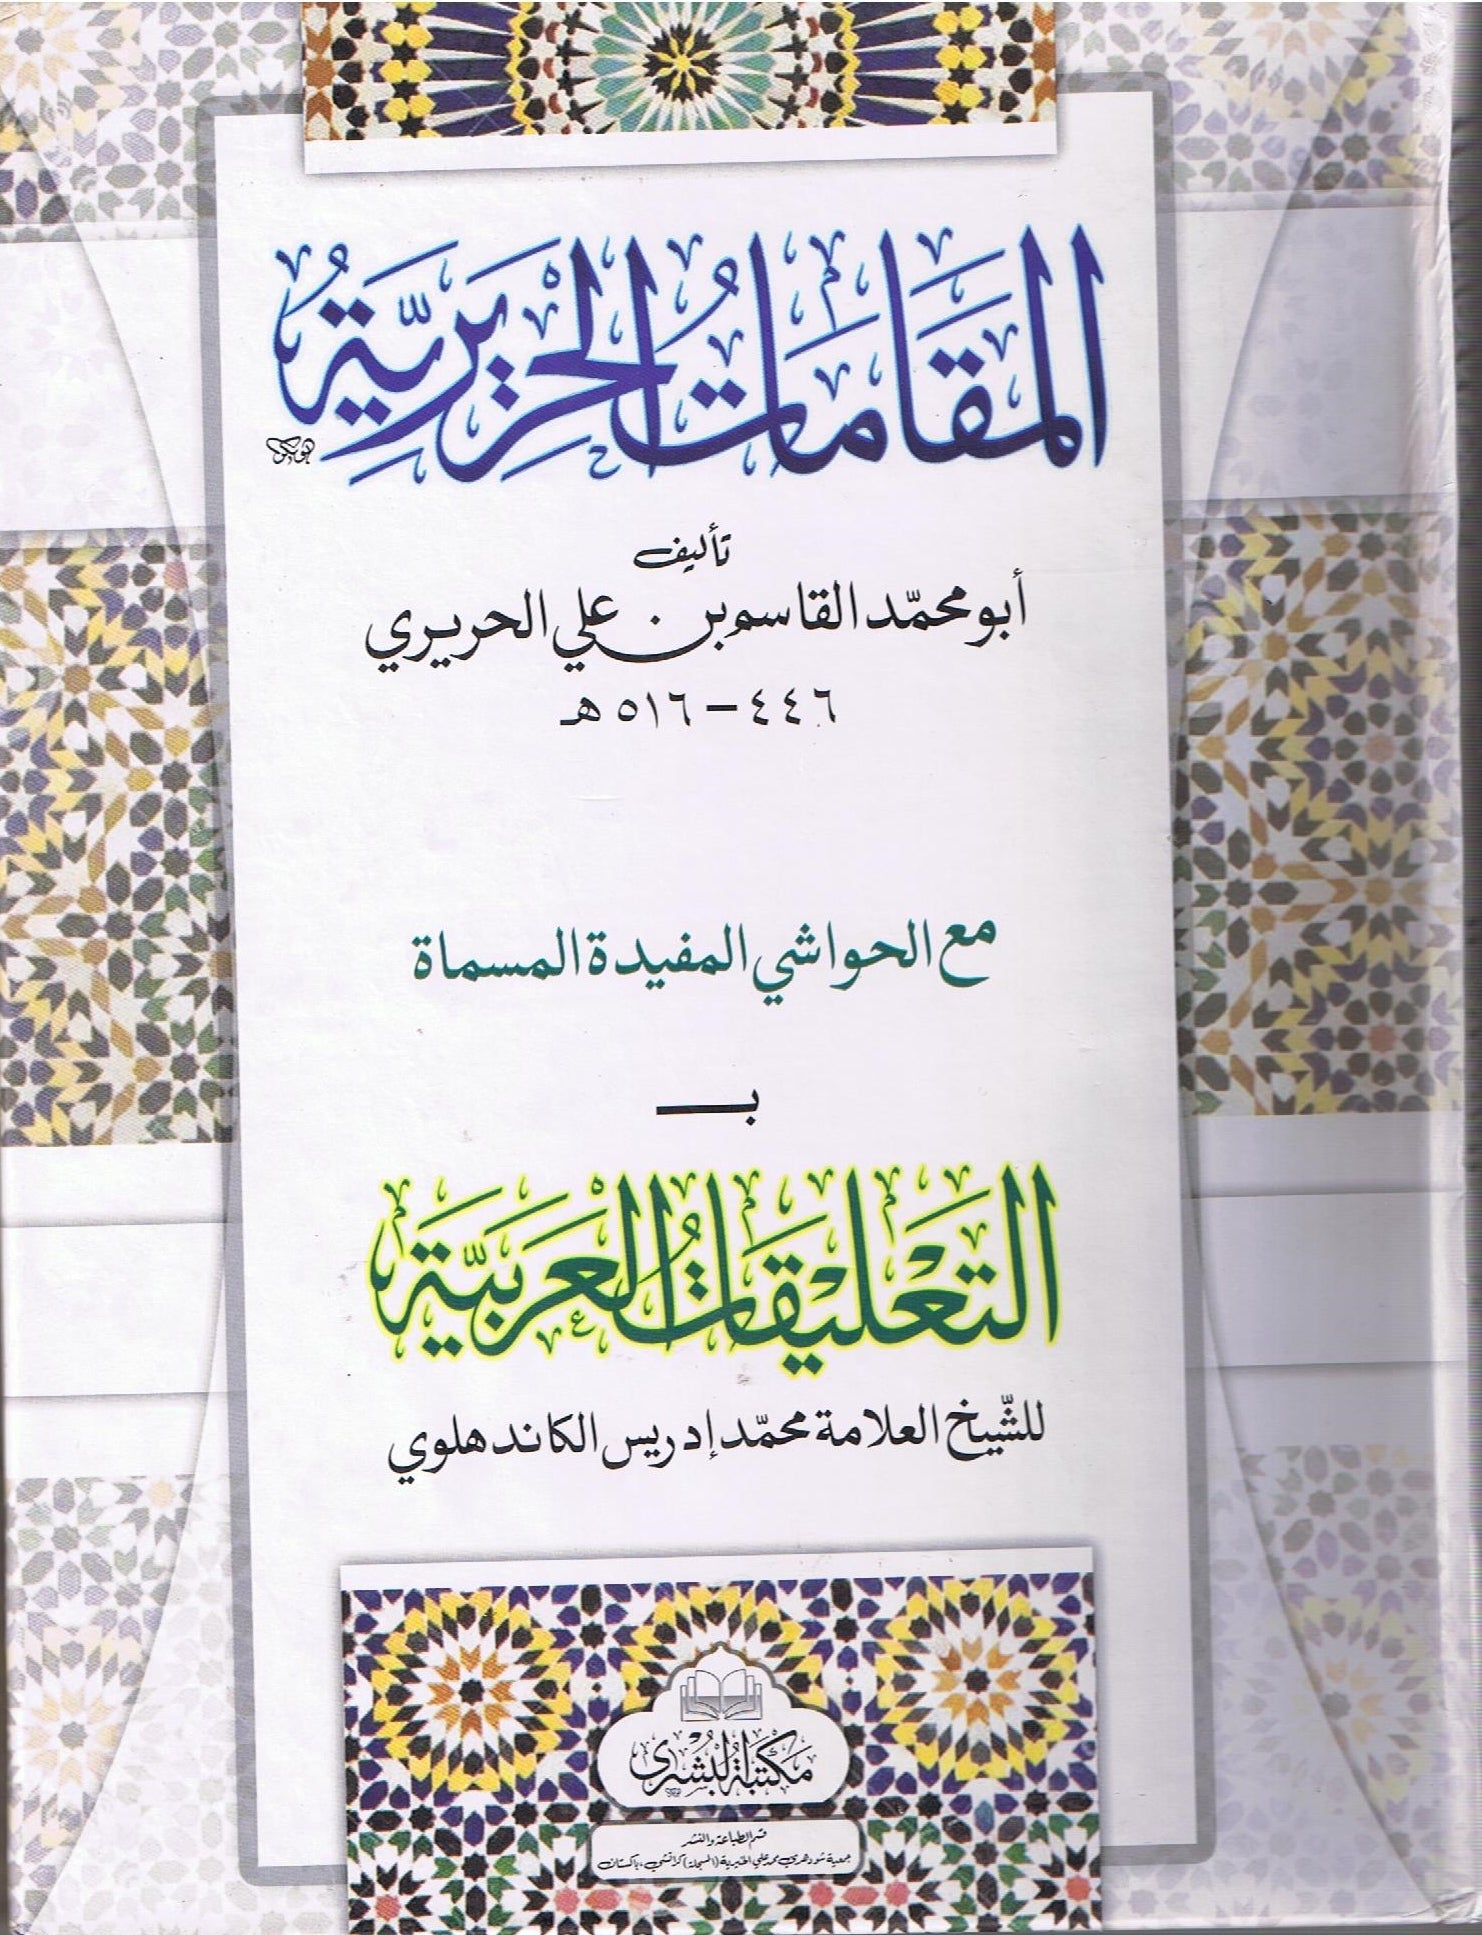 المقامات الحريرية
تأليف
أبو محمّد القاسم بن علي الحريري
٤٤٦ – ٥١٦ هـ
مع الحواشي المفيدة المسماة
بـ
التعليقات العربية
للشّيخ العلامة محمّد إدريس الكاندهلوي
مكتبة البشرى
قسم الطباعة والنشر
جمعية شودهري محمد علي الخيرية (المسجلة) كراتشي، باكستان